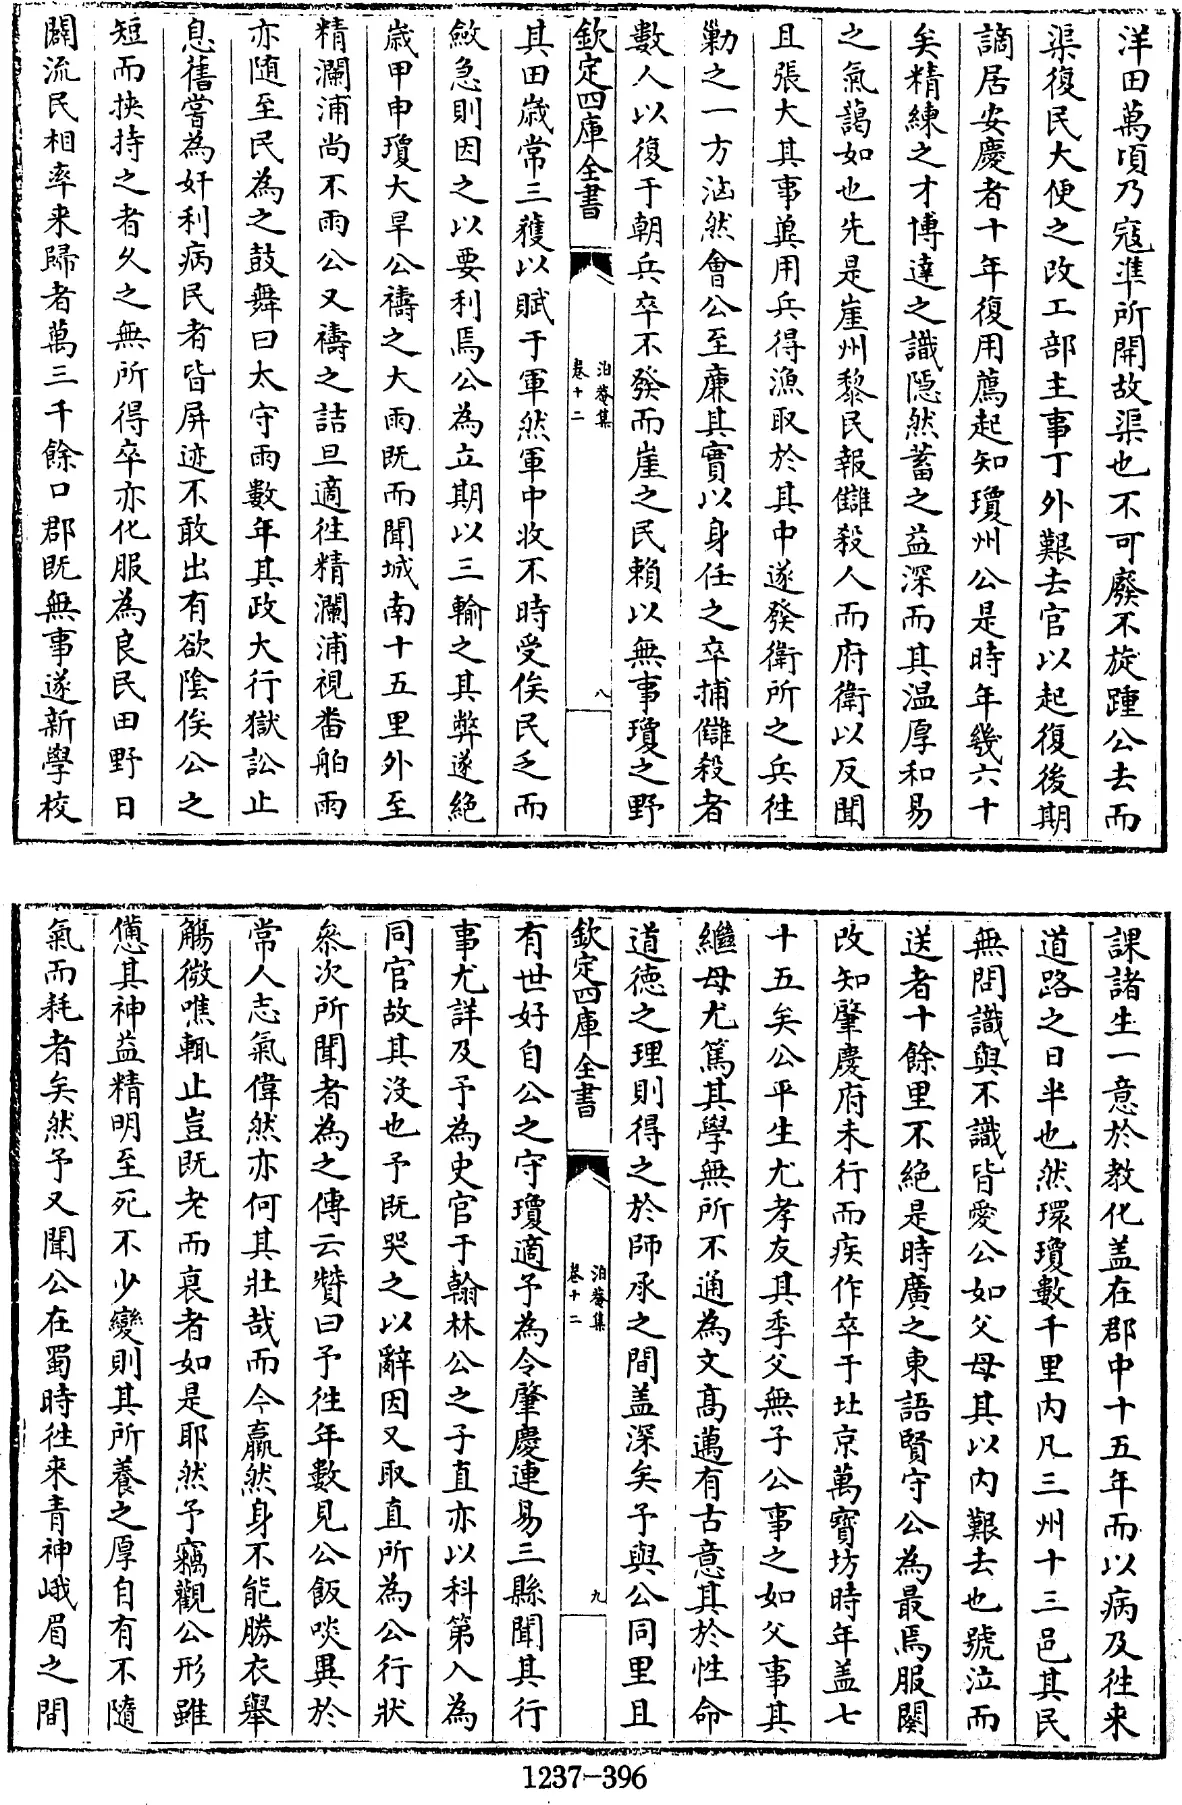 洋田萬頃乃冦凖所開故渠也不可廢不旋踵公去而
渠復民大便之改工部主事丁外艱去官以起復後期
謫居安慶者十年復用薦起知瓊州公是時年幾六十
矣精練之才博達之識隠然蓄之益深而其温厚和易
之氣藹如也先是崖州黎民報讎殺人而府衛以反聞
且張大其事兾用兵得漁取於其中遂發衛所之兵徃
勦之一方洶然會公至亷其實以身任之卒捕讎殺者
數人以復于朝兵卒不發而崖之民頼以無事瓊之野
欽定四庫全書
泊菴集
卷十二
八
其田嵗常三穫以賦于軍然軍中收不時受俟民乏而
斂急則因之以要利焉公為立期以三輸之其弊遂絶
嵗甲申瓊大旱公禱之大雨既而聞城南十五里外至
精瀾浦尚不雨公又禱之詰旦適徃精瀾浦視畨舶雨
亦随至民為之鼓舞曰太守雨數年其政大行獄訟止
息舊嘗為奸利病民者皆屏迹不敢出有欲陰俟公之
短而挾持之者久之無所得卒亦化服為良民田野日
闢流民相率来歸者萬三千餘口郡既無事遂新學校
課諸生一意於教化盖在郡中十五年而以病及徃来
道路之日半也然環瓊數千里内凡三州十三邑其民
無間識與不識皆愛公如父母其以内艱去也號泣而
送者十餘里不絶是時廣之東語賢守公為最焉服闋
改知肇慶府未行而疾作卒于北京萬寳坊時年盖七
十五矣公平生尤孝友其季父無子公事之如父事其
繼母尤篤其學無所不通為文髙邁有古意其於性命
道德之理則得之於師承之間盖深矣予與公同里且
欽定四庫全書
泊菴集
卷十二
九
有世好自公之守瓊適予為令肇慶連易三縣聞其行
事尤詳及予為史官于翰林公之子直亦以科第入為
同官故其没也予既哭之以辭因又取直所為公行狀
叅次所聞者為之傳云贊曰予徃年數見公飯啖異於
常人志氣偉然亦何其壯哉而今羸然身不能勝衣舉
觴微噍輙止豈既老而衰者如是耶然予竊觀公形雖
憊其神益精明至死不少變則其所養之厚自有不隨
氣而耗者矣然予又聞公在蜀時徃来青神峨眉之間
1237-396